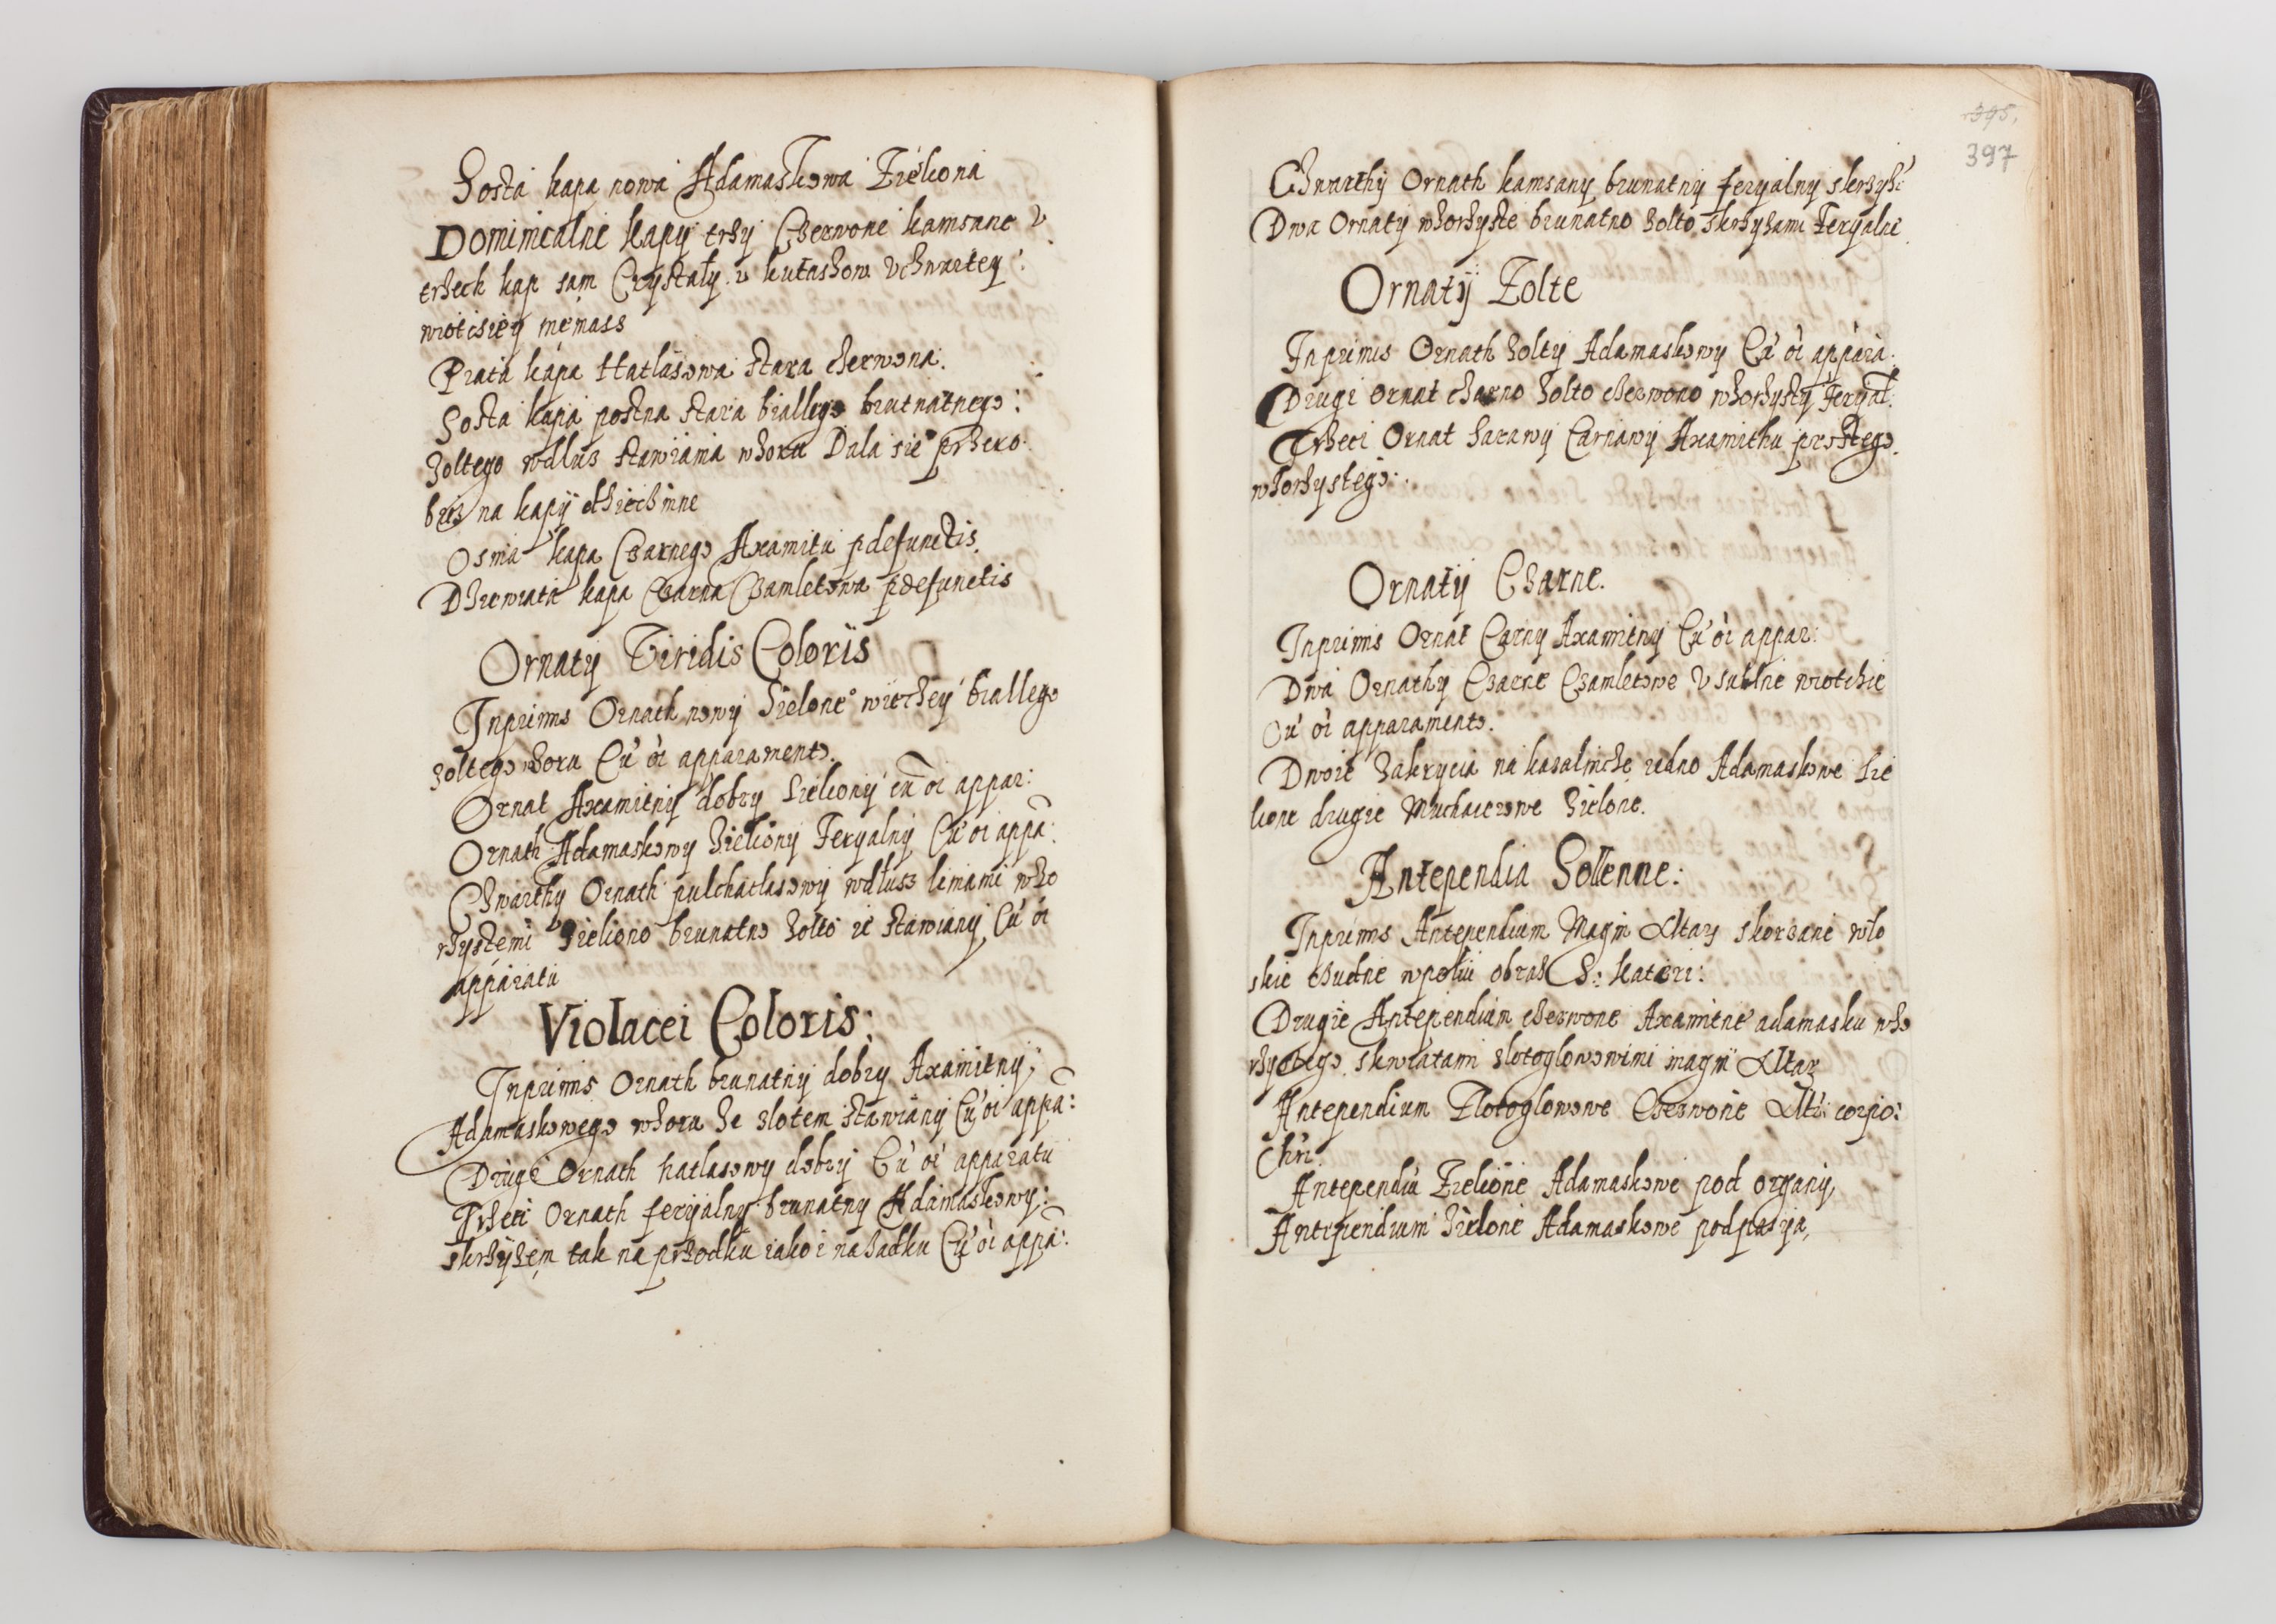 Sosta kapa nowa Adamaskowa Zieliona
Dominicalne kapy trhy Czerwone kamsane v
trhech kap sąm Crystały v kutashow Vchwartey
wiotchiey nięmass
Piata kapa Hatlasowa stara cherwona.
Sosta kapa postna stara biallego brutnatnego:
zoltego wdlus stawiania whoru Dala sie przero
bicz na kapy
Osma kapa Czarnego Axamitu p defunctis.
Dhiewiata kapa Czarna Czamletowa p defunctis
Ornaty Viridis Coloris
Inprimis Ornath nowy Zielone wierzchey biallego
zoltego whoru Cu oi apparamento.
Ornat Axamitny dobry Zieliony cu oi appar:
Ornath Adamaskowy Zieliony Feryalny Cu oi appa:
Chwarthy Ornath pulchatlasowy wdlusz limami who
rhystemi Zieliono brunatno zolto ie stawiany Cu oi
apparatu
Violacei Coloris:
Inprimis Ornath brunatny dobry Axamitny,
Adamaskowego whoru ze zlotem stawiany Cu oi appa:
Drugi Ornath hatlasowy dobry Cu oi apparatu
Trheci Ornath feryalny brunatny Adamaskowy:
skrhyzem tak na przodku iako i na zadku Cu oi appa:
395,
397
Chwarthy Ornath kamsany brunatny feryalny skrzyzi
Dwa Ornaty whorhyste brunatno zolto skrhyzami Feryalne
Ornaty Zolte
Inprimis Ornath zolty Adamaskowy Cu oi appara.
Drugi Ornat charno zolto cherwono whorhysty Feryal:
Trheci Ornat Czarnawy Axamithu prostego
whorhystego:
Ornaty Czarne.
Inprimis Ornat Carny Axamitny Cu oi appar:
Dwa Ornathy Czarne Czamletowe wiotchie
Cu oi apparamento.
Dwoie Zakrycia na kazalniche iedno Adamaskowe Zie
lione drugie Muchaierowe Zielone.
Antependia Sollenne:
Inprimis Antependium Magni Altaris skorzane wlo
skie chudne wpolu obraz S: Kateri:
Drugie Antependium cherwone Axamitne adamasku who
rhystego skwiatami zlotoglowowimi magni Altar
Antependium Zlotoglowowe Czerwone Alti: corpo:
Chri.
Antependiu Zielione Adamaskowe pod organy,
Antependium Zielone Adamaskowe podpasya,